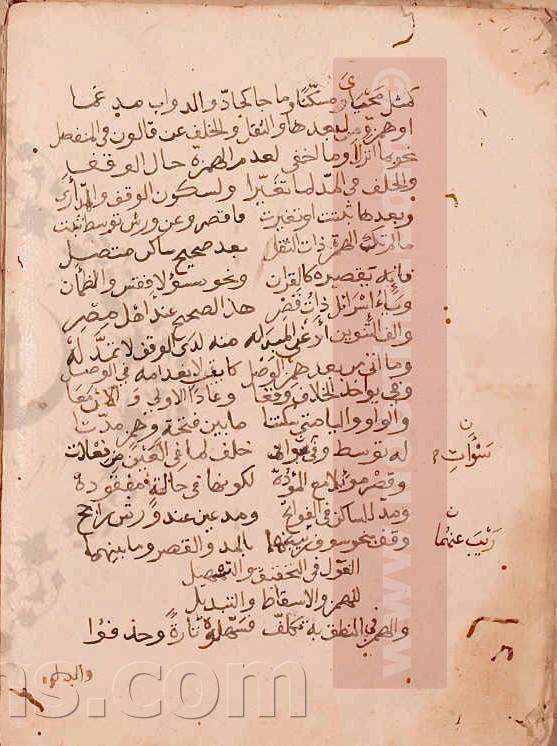 كمثل محياي ومسكنا وما جا كحادّ والدواب مدغما
او همزة من بعدها والنقل والخلف عن قالون في المنفصل
نحو بما انزل وما اخفى لعدم الهمزة حال الوقف
والخلف في المد لما تغيرا ولسكون الوقف والمد أرى
وبعدها ثبتت او تغيرت فاقصر وعن ورش توسط ثبت
مالم تك الهمزة ذات الثقل بعد صحيح ساكن متصل
فانه يقصره كالقرآن ونحو مسؤلا فقس والظمآن
وياء إسرائيل ذات قصر هذا الصحيح عند اهل مصر
والف التنوين أعني المبدله منه لدى الوقف لا يمد له
وما اتى من بعد همز الوصل كايت لانعدامه في الوصل
وفي يواخذ الخلاف وقعا وعادا الاولى و الان معا
والواو واليا متى سكنتا مابين فتحة وهمز مدتا
له توسط وفي سوآت خلف لما في العين من فعلات
وقصر موئلا مع الموؤده لكونها في حالة مفقوده
ومد للساكن في الفواتح ومد عين عند ورش راجح
وقف بنحو سوف ريب عنهما بالمد والقصر وما بينهما
القول في التحقيق والتسهيل
للهمز والاسقاط والتبديل
والهمز في النطق به تكلف فسهلوه تارة وحذفوا
سَوْأَتِ
رَيْبَ عنهُما
وابدلوه
ms.com